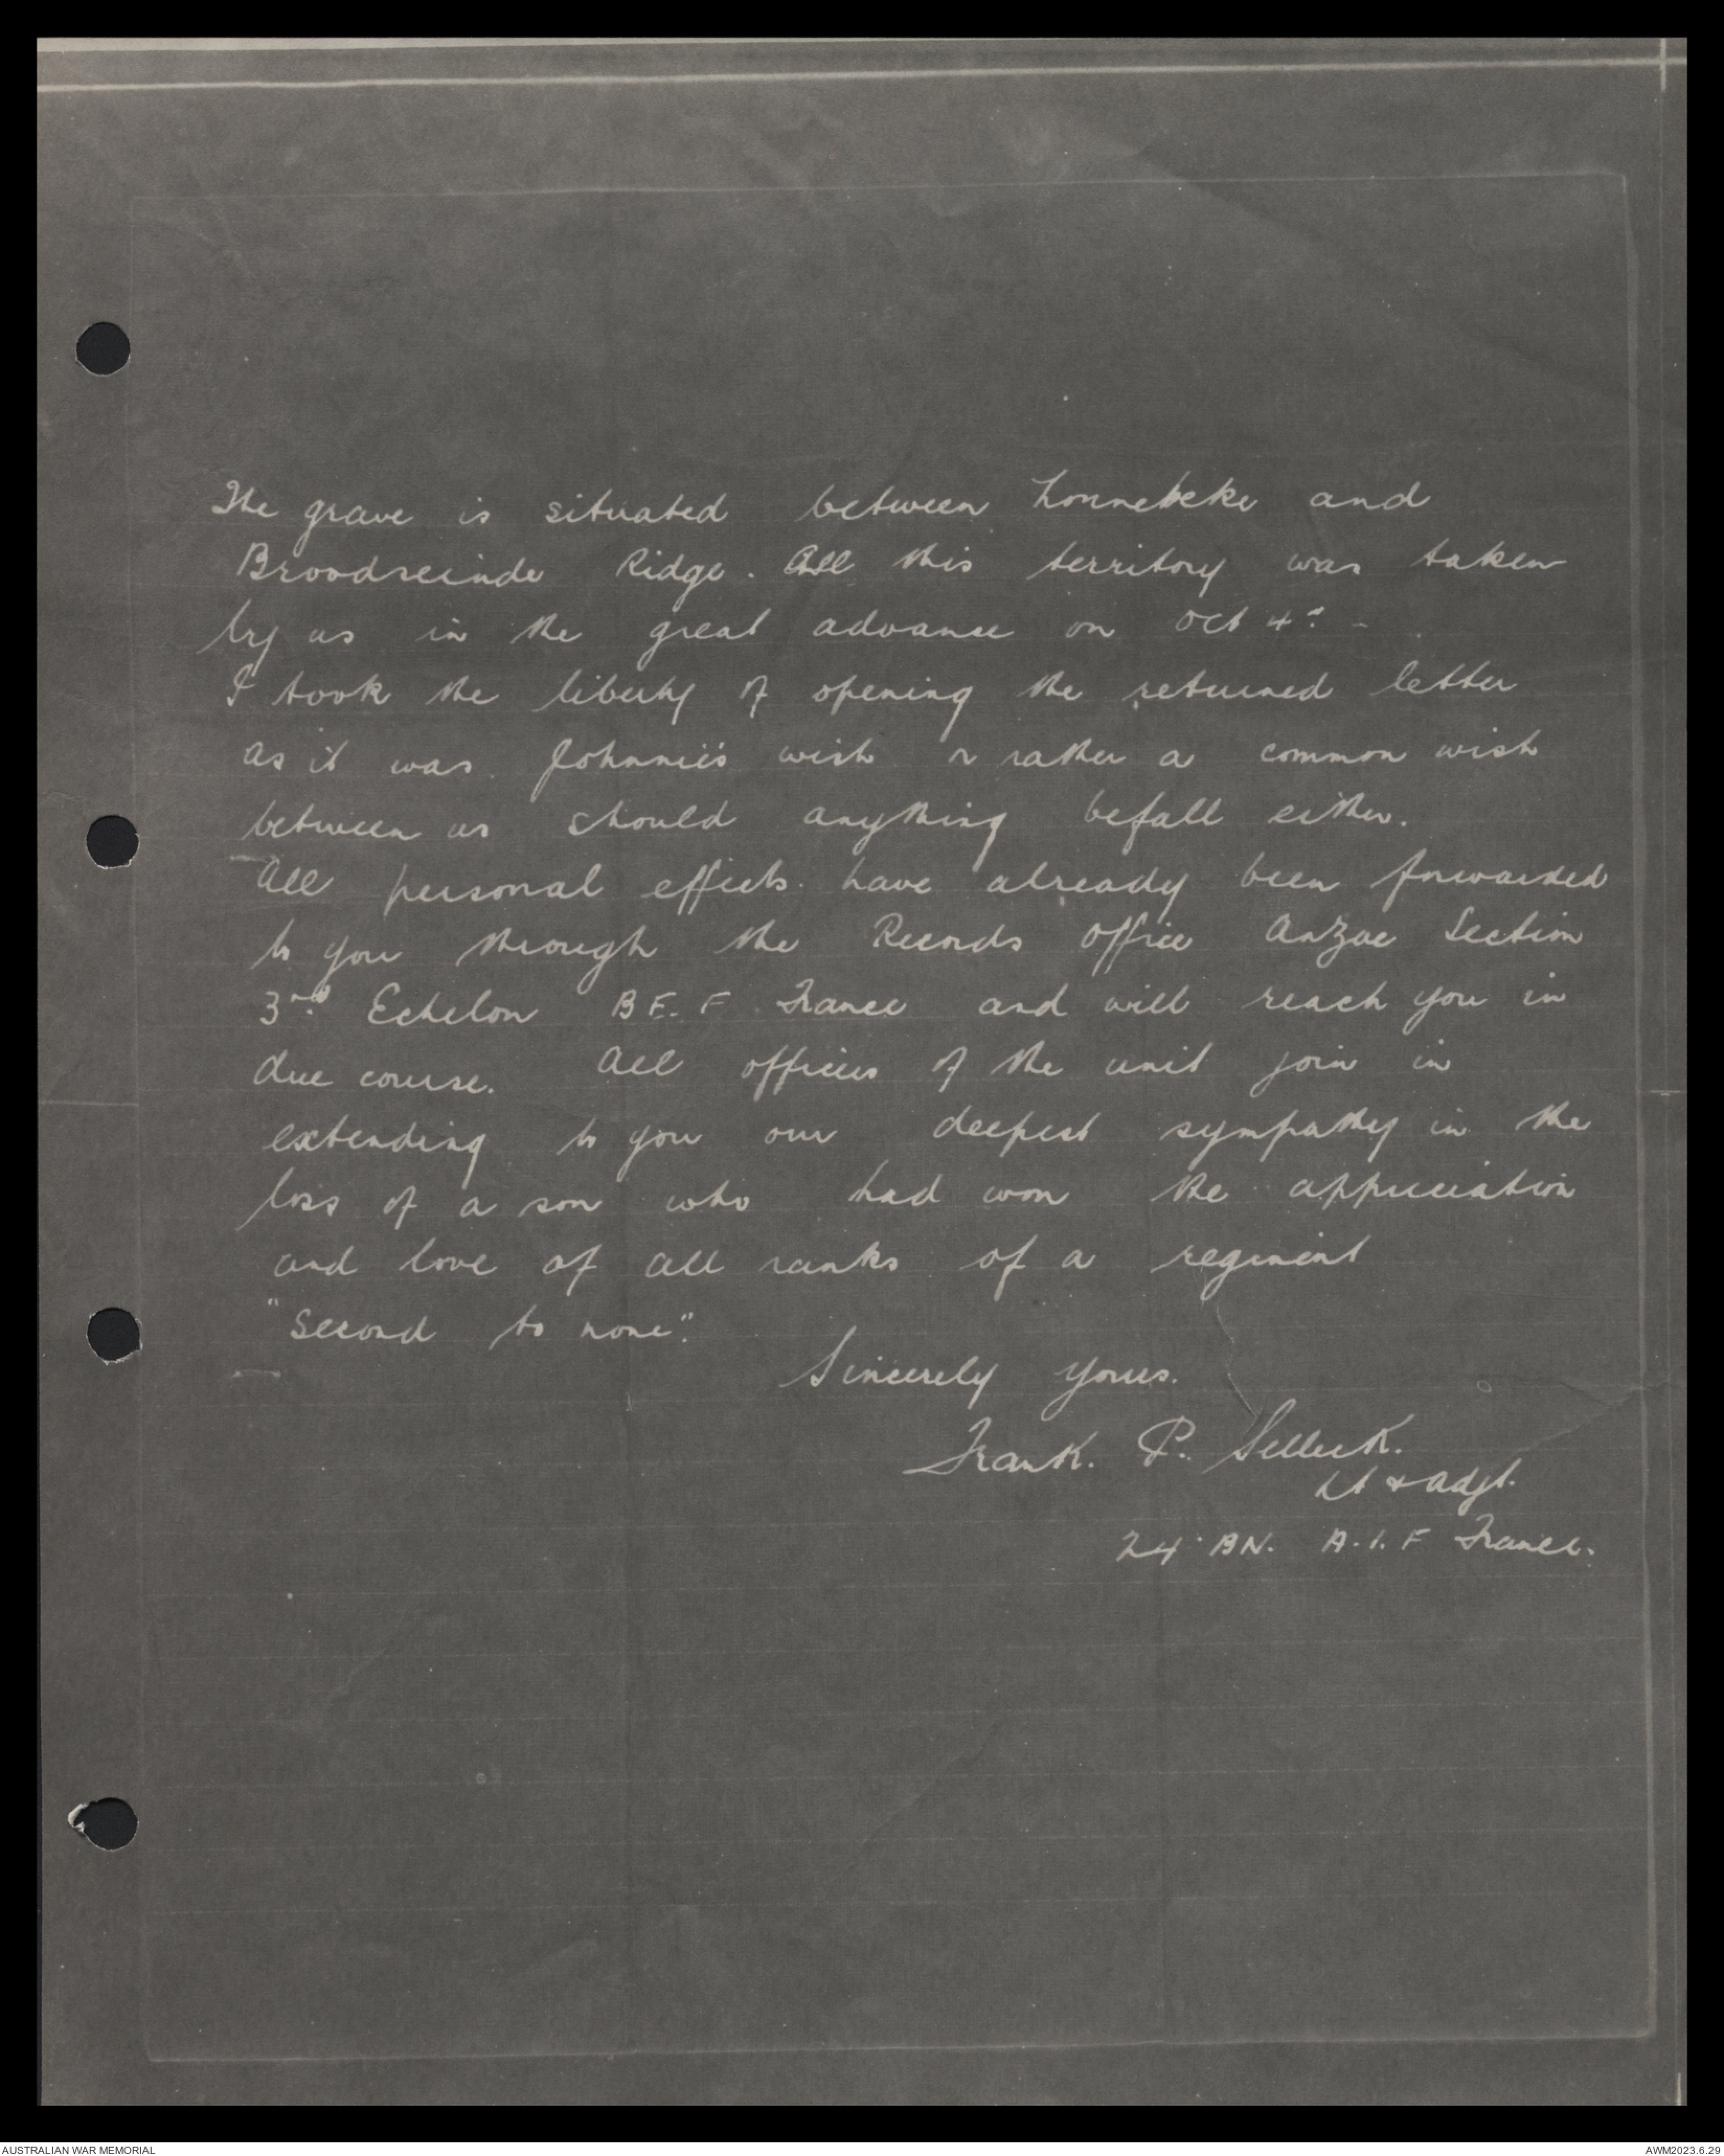 The grave is situated between Zonnebeke and
Broodseinde Ridge. All this territory was taken
by us in the great advance on Oct 4th -
I took the liberty of opening the returned letter
as it was Johnnie's wish or rather a common wish
between us should anything befall either.
All personal effects have already been forwarded
to you through the Records Office Anzac Section
3rd Echelon B.E.F. France and will reach you in
due course. All officers of the unit join in
extending to you our deepest sympathy in the
loss of a son who had won the appreciation
and love of all ranks of a regiment
"Second to none".
Sincerely yours.
Frank. P. Selleck.
Lt & Adjt.
24 BN. A.I.F France.
AUSTRALIAN WAR MEMORIAL
AWM2023.6.29